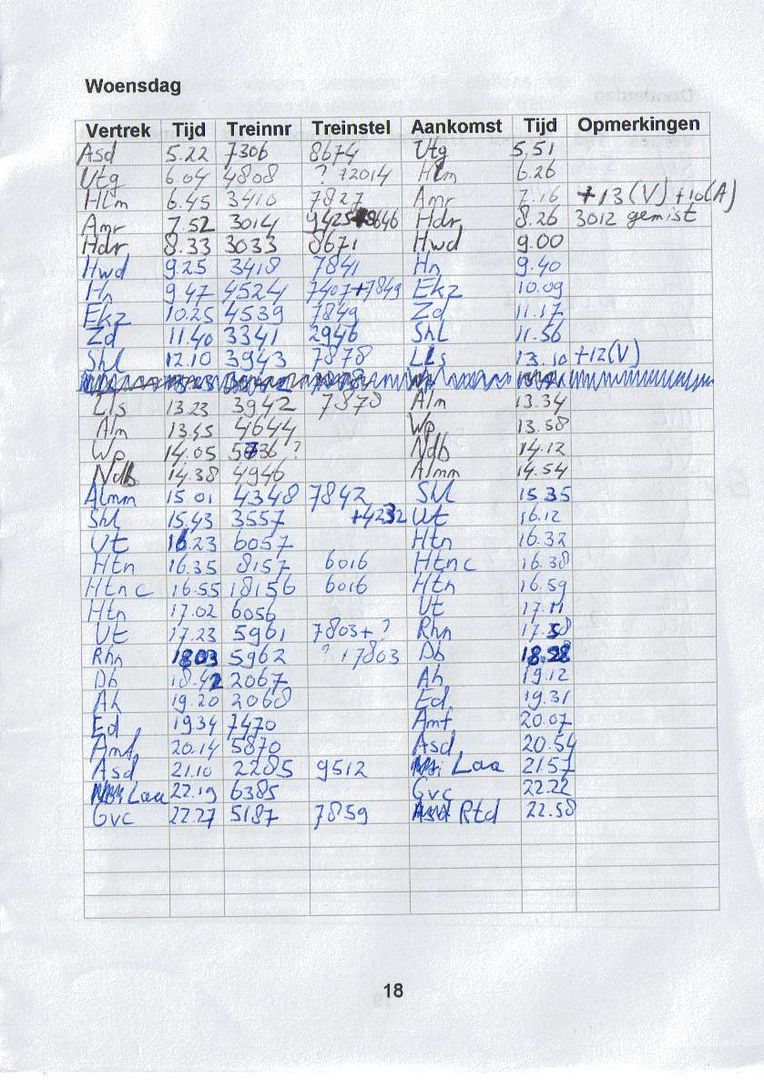 Woensdag
Vertrek Tijd Treinnr Treinstel Aankomst Tijd Opmerkingen
Asd 5.22 7306 8674 Utg 5.51
Utg 6.04 4808 ? 72014 Hlm 6.26
Hlm 6.45 3410 7827 Amr 7.16 +13(V) +10(A)
Amr 7.52 3014 9425+8646 Hdr 8.26 3012 gemist
Hdr 8.33 3033 8671 Hwd 9.00
Hwd 9.25 3418 7841 Hn 9.40
Hn 9.47 4524 7407+7849 Ekz 10.09
Ekz 10.25 4539 7849 Zd 11.17
Zd 11.40 3341 2946 Shl 11.56
Shl 12.10 3943 7878 Lls 13.10 +12(V)
Lls 13.23 3942 7878 Alm 13.34
Alm 13.45 4644 Wp 13.58
Wp 14.05 5736 ? Ndb 14.12
Ndb 14.38 4946 Almm 14.54
Almm 15.01 4348 7842 Shl 15.35
Shl 15.43 3557 +4232 Ut 16.12
Ut 16.23 6057 Htn 16.32
Htn 16.35 8157 6016 Htnc 16.38
Htnc 16.55 18156 6016 Htn 16.59
Htn 17.02 6056 Ut 17.11
Ut 17.23 5961 7803+? Rhn 17.58
Rhn 18.03 5962 ?+7803 Db 18.28
Db 18.42 2067 Ah 19.12
Ah 19.20 2068 Ed 19.31
Ed 19.34 7470 Amf 20.07
Amf 20.14 5870 Asd 20.54
Asd 21.10 2285 9512 Laa 21.57
Laa 22.19 6385 Gvc 22.22
Gvc 22.27 5187 7859 Rtd 22.58
18